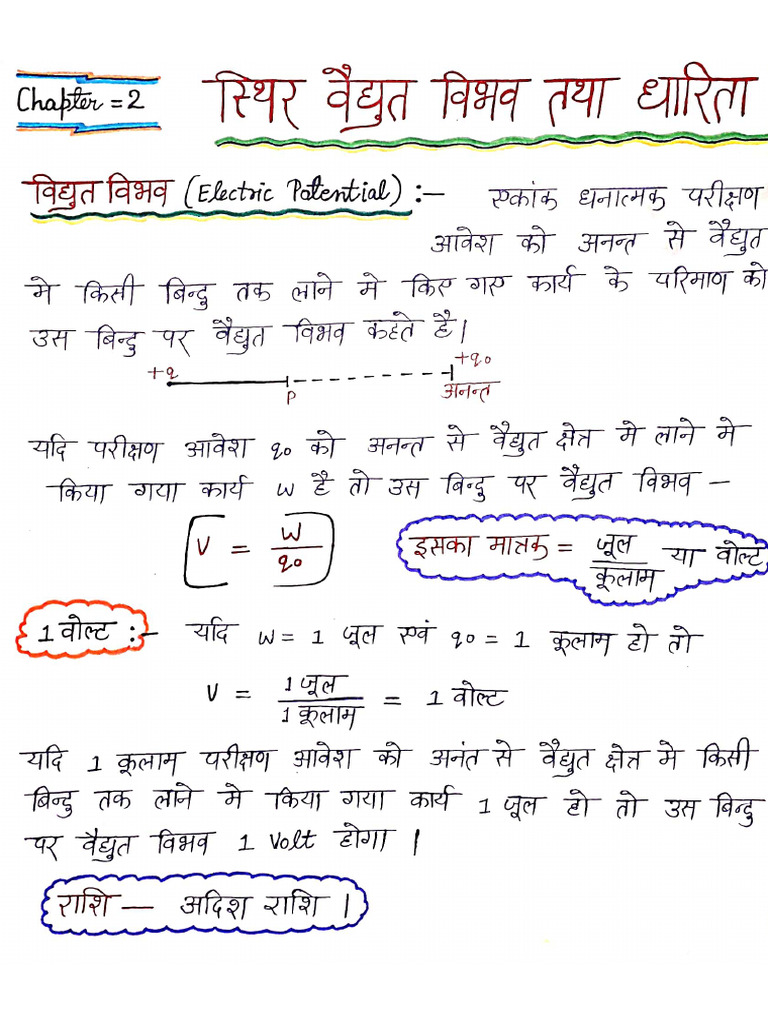 Chapter = 2
स्थिर वैद्युत विभव तथा धारिता
विद्युत विभव (Electric Potential) :- एकांक धनात्मक परीक्षण
आवेश को अनन्त से वैद्युत
मे किसी बिन्दु तक लाने मे किए गए कार्य के परिमाण को
उस बिन्दु पर वैद्युत विभव कहते है।
+q P +q₀
अनन्त
यदि परीक्षण आवेश q₀ को अनन्त से वैद्युत क्षेत्र मे लाने मे
किया गया कार्य W है तो उस बिन्दु पर वैद्युत विभव -
V = W/q₀
इसका मात्रक = जूल/कूलाम या वोल्ट
1 वोल्ट :- यदि W = 1 जूल एवं q₀ = 1 कूलाम हो तो
V = 1 जूल/1 कूलाम = 1 वोल्ट
यदि 1 कूलाम परीक्षण आवेश को अनंत से वैद्युत क्षेत्र मे किसी
बिन्दु तक लाने मे किया गया कार्य 1 जूल हो तो उस बिन्दु
पर वैद्युत विभव 1 Volt होगा।
राशि — अदिश राशि।